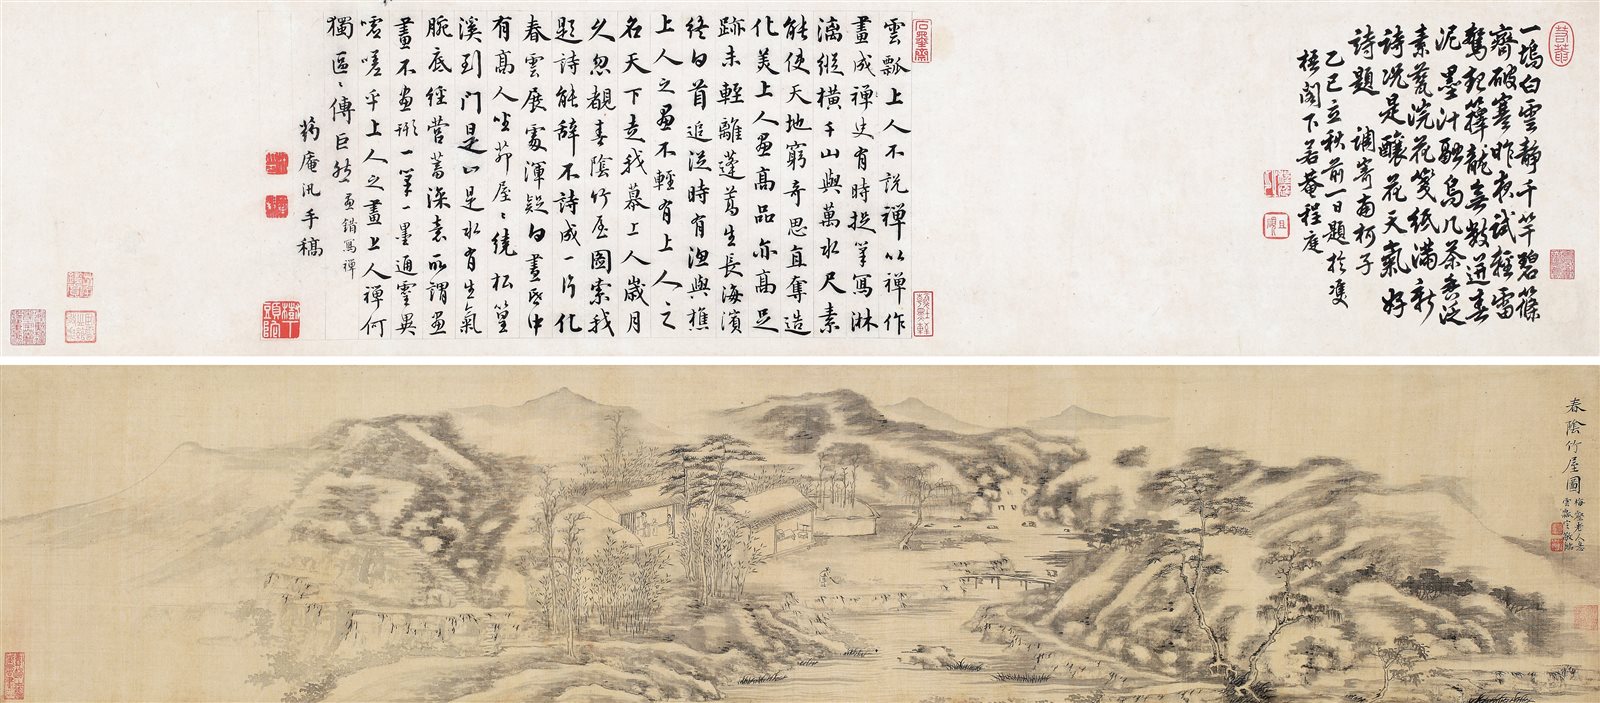 一塢白雲靜千竿碧篠
齊破蹇昨夜試輕雷
驚起籜龍無數迸春
泥 墨汁融烏几茶香泛
素甆浣花箋紙滿新
詩況是釀花天氣好
詩題 調寄南柯子
乙巳立秋前一日題於雙
梧閣下若菴程庭
雲瓢上人不説禪以禪作
畫成禪史有時捉筆寫淋
漓縱橫千山與萬水尺素
能使天地窮奇思直奪造
化美上人畫高品亦高足
跡未輕離蓬蒿生長海濱
終白首追從時有漁與樵
上人之畫不輕有上人之
名天下走我慕上人歲月
久忽覩春陰竹屋圖索我
題詩能辭不詩成一片化
春雲展處渾疑白晝昏中
有高人坐茆屋屋繞松篁
溪到門是山是水有生氣
腕底經營蓄深意所謂畫
畫不畫形一筆一墨通靈異
噫嗟乎上人之畫上人禪何
獨區區傳巨然 畫錯寫禪
蒻庵汎手稿
樹下
頭陀
春陰竹屋圖